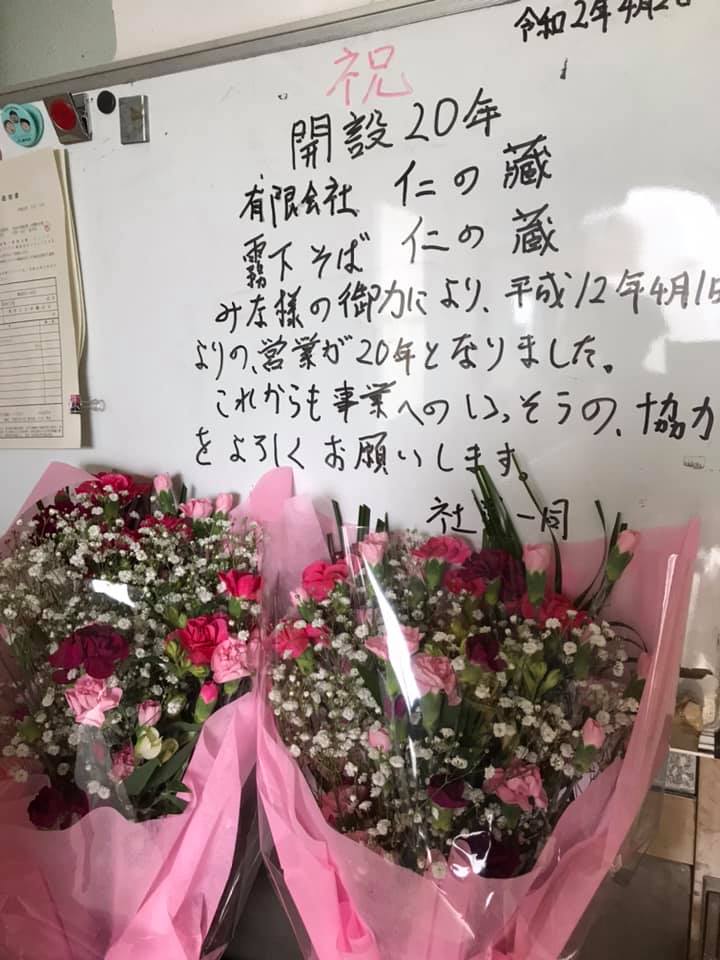 令和2年4月2日
祝
開設20年
有限会社 仁の藏
霧下そば 仁の藏
みな様の御力により、平成12年4月1日
よりの、営業が20年となりました。
これからも事業へのいっそうの、協力
をよろしくお願いします。
社 一同